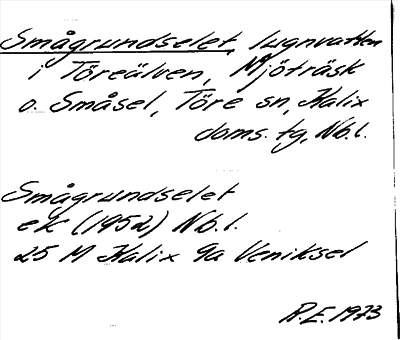 Smågrundselet, lugnvatten
i Töreälven, Mjöträsk
o. Småsel, Töre sn, Kalix
doms. tg, Nb.l.
Smågrundselet
ek (1952) Nb.l.
25 M Kalix 9a Veniksel
R.E. 1973